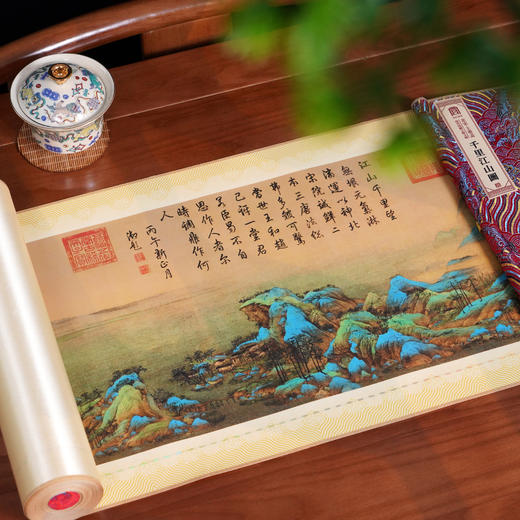 江山千里望
無垠元氣淋
漓運以神北
宋院誠鮮二
本三唐法總
弗多皴可驚
當世王和趙
已訝一堂君
若臣曷不自
思作人者尔
時調鼎作何
人
丙午新正月
御題
千里江山圖